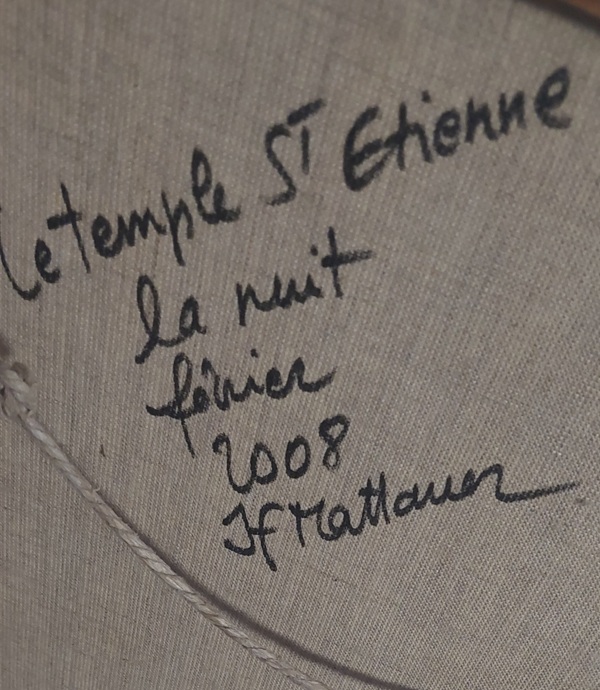 Le temple ST Etienne
la nuit
février
2008
Jf Mattauer